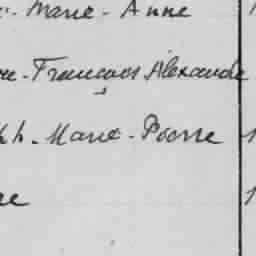 Marie - Anne
- François Alexandre
ph. Marie - Pierre
re